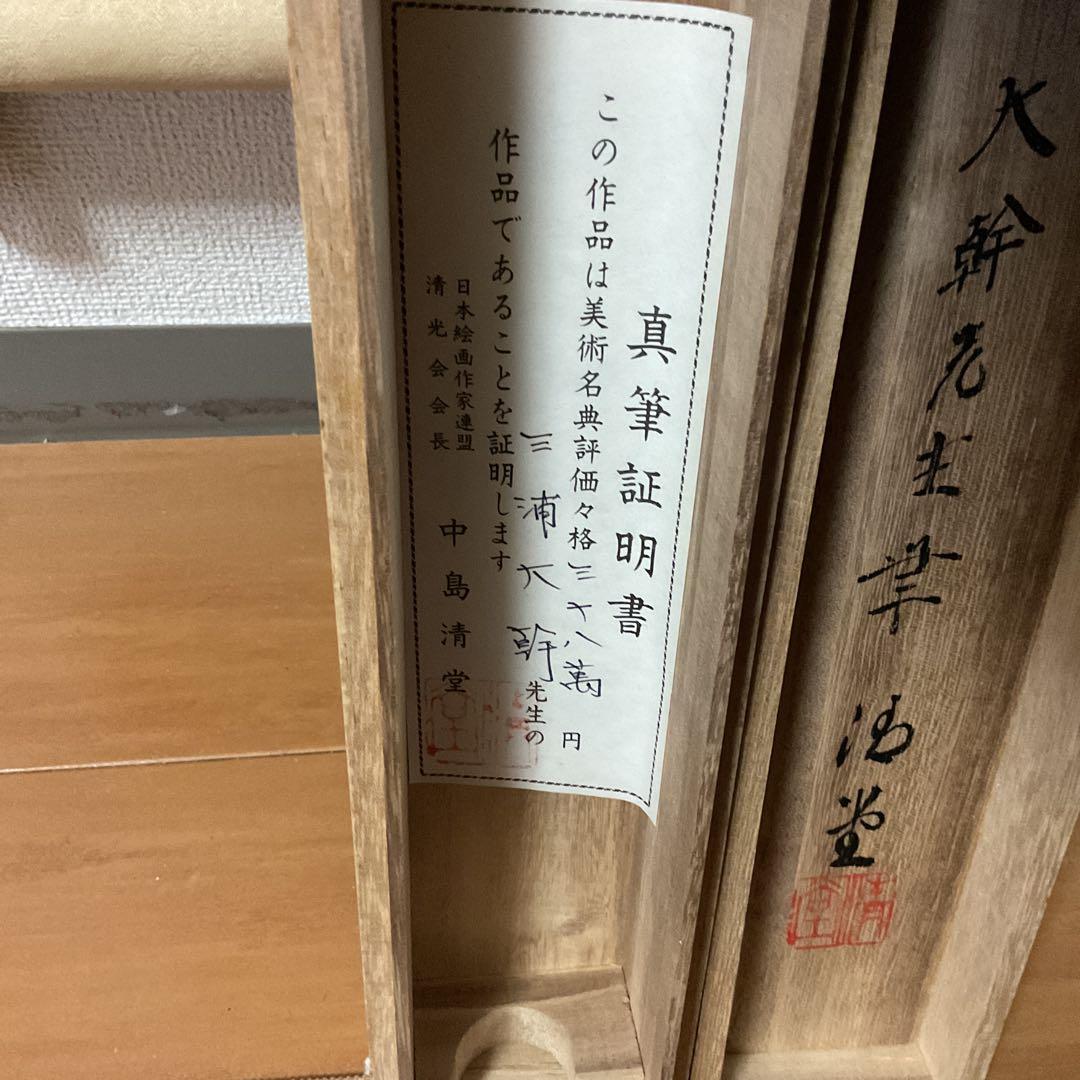 大幹先生筆
清堂
清堂
真筆証明書
この作品は美術名典評価々格三十八萬円
三浦大幹先生の
作品であることを証明します
日本絵画作家連盟
清光会会長
中島清堂